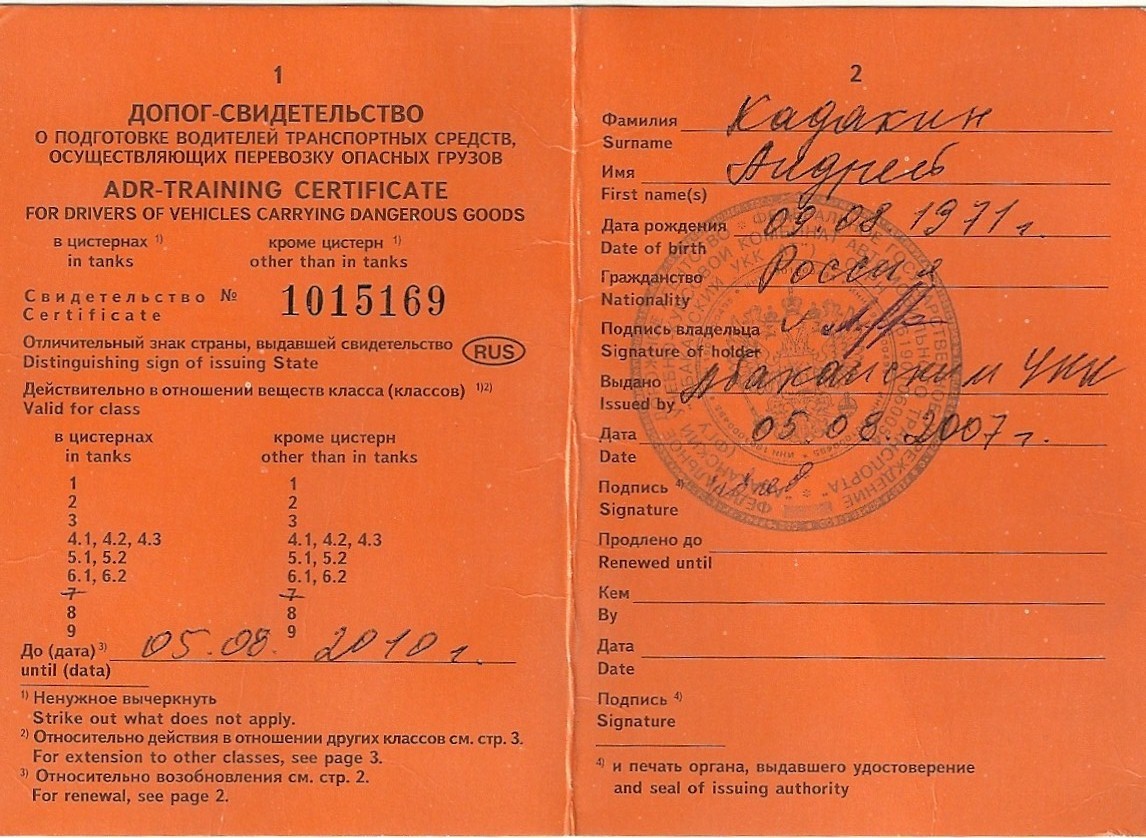 1
ДОПОГ-СВИДЕТЕЛЬСТВО
О ПОДГОТОВКЕ ВОДИТЕЛЕЙ ТРАНСПОРТНЫХ СРЕДСТВ,
ОСУЩЕСТВЛЯЮЩИХ ПЕРЕВОЗКУ ОПАСНЫХ ГРУЗОВ
ADR-TRAINING CERTIFICATE
FOR DRIVERS OF VEHICLES CARRYING DANGEROUS GOODS
в цистернах 1) кроме цистерн 1)
in tanks other than in tanks
Свидетельство № 1015169
Certificate
Отличительный знак страны, выдавшей свидетельство RUS
Distinguishing sign of issuing State
Действительно в отношении веществ класса (классов) 1)2)
Valid for class
в цистернах кроме цистерн
in tanks other than in tanks
1 1
2 2
3 3
4.1, 4.2, 4.3 4.1, 4.2, 4.3
5.1, 5.2 5.1, 5.2
6.1, 6.2 6.1, 6.2
7 7
8 8
9 9
До (дата) 3) 05.08. 2010 г.
until (data)
1) Ненужное вычеркнуть
Strike out what does not apply.
2) Относительно действия в отношении других классов см. стр. 3.
For extension to other classes, see page 3.
3) Относительно возобновления см. стр. 2.
For renewal, see page 2.
2
Фамилия Кадакин
Surname
Имя Андрей
First name(s)
Дата рождения 09.08.1971 г.
Date of birth
Гражданство Россия
Nationality
Подпись владельца
Signature of holder
Выдано Абаканским УКК
Issued by
Дата 05.08.2007 г.
Date
Подпись 4)
Signature
Продлено до
Renewed until
Кем
By
Дата
Date
Подпись 4)
Signature
4) и печать органа, выдавшего удостоверение
and seal of issuing authority